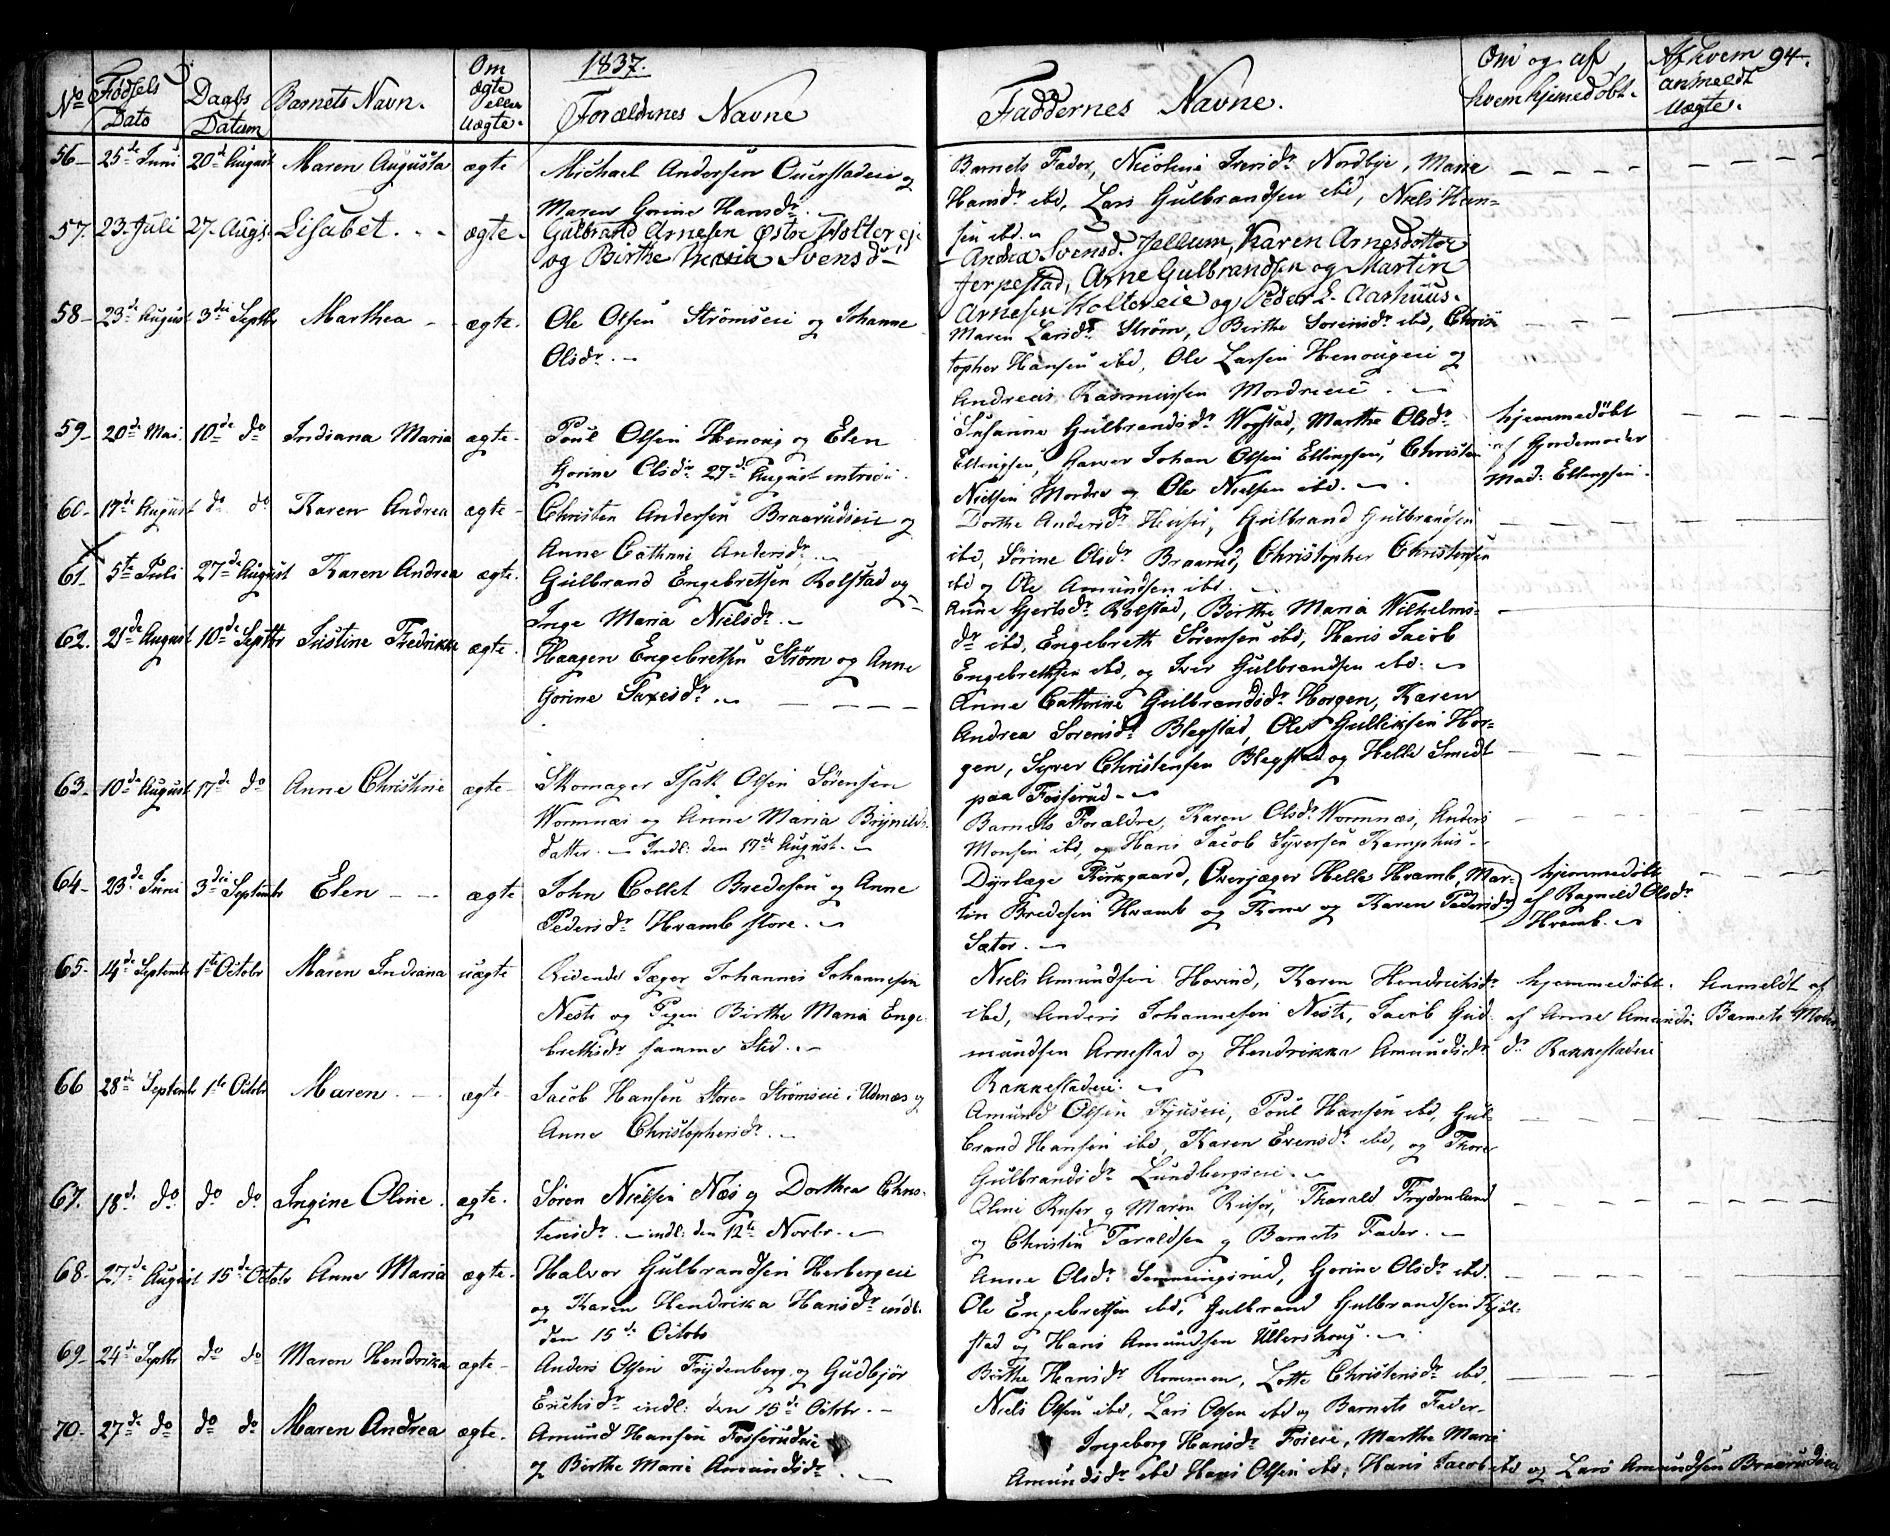 1837.
94.
No Fødsels Dato
Daabs Datum
Barnets Navn.
Om ægte eller uægte.
Forældrenes Navne
Faddernes Navne.
Om og af hvem hjemedøbt.
Af hvem anmeldt uægte.
56 25de Juni 20de August Maren Augusta ægte
Michael Andersen og
Maren Gorine Hansdr.
Barnets Fader, Nicoline Iversdr Nordbye, Marie
Hansdr ibd, Lars Gulbrandsen ibd, Niels Han-
sen ibd.
57. 23. Juli 27. Augs. Lisabet. ægte.
Gulbrand Arnesen Østre Holtereie
og Birthe Maria Svensd.
Andrea Svensd. Jellum, Karen Arnesdotter
Jerpestad, Arne Gulbrandsen og Martin
Arnesen Holtereie og Peder L. Aashuus.
58 23de August 3die Septbr Marthea ægte.
Ole Olsen Strømseie og Johanne
Olsdr.
Maren Larsdr Strøm, Birthe Sorensdr ibd, Chris
topher Hansen ibd, Ole Larsen Henougeie og
Andreas Rasmussen Mordreeie
59 20de Mai 10de do Indiana Maria ægte
Poul Olsen Henoug og Elen
Gorine Olsdr 27de August introd.
Susanne Gulbrandsdr Wogstad, Marthe Olsdr
Ellingsen, Johan Olsen Ellingsen, Christen
Nielsen Mordre og Ole Nielsen ibd.
hjemmedøbt
af Gjordemoder
Mad: Ellingsen.
60 17de August do do Karen Andrea ægte
Christen Andersen Braarudeie og
Anne Cathrine Andersdr.
Dorthe Andersdr Gulbrand Gulbrandsen
ibd, Sørine Olsdr Braarud, Christopher Christensen
ibd og Ole Amundsen ibd.
61 5te Juli 27de August Karen Andrea ægte.
Gulbrand Engebretsen Rolstad og
Inge Maria Nielsdr.
Anne Gjertsdr Rolstad, Birthe Maria Wilhelms-
dr ibd, Engebreth Sørensen ibd, Hans Jacob
Engebrethsen ibd, og Iver Gulbrandsen ibd.
62. 21de August 10de Septbr Justine Fredrikke ægte.
Haagen Engebretsen Strøm og Anne
Gorine Saxesdr.
Anne Cathrine Gulbrandsdr Horgen, Karen
Andrea Sørensdr Blegstad, Ole Gulliksen Hor-
gen, Syver Christensen Blegstad og Helle Smedt
paa Fosserud
63 10de August 17de do Anne Christine ægte
Skomager Isak Olsen Sørensen
Wormnæs og Anne Maria Brynilds-
datter. Indl: den 17de August.
Barnets Forældre, Karen Olsdr Wormnæs, Anders
Monsen ibd, og Hans Jacob Syversen Kamphus
64 23de Juni 3die Septembr Elen ægte
John Collet Bredesen og Anne
Pedersdr Hvamb store.
Dyrlæge Kirkgaard, Overjæger Helle Hvamb, Mar-
tin Bredesen Hvamb og Kone og Karen Pedersdr
Sæter.
hjemmedøbt
af Ragneld Olsdr
Hvamb.
65 14de Septembr 1ste Octobr Maren Indiana uægte
Ridende Jæger Johannes Johannesen
Neste og Pigen Birthe Maria Enge-
brethsdr samme Sted.
Niels Amundsen Hovind, Karen Hendriksdr
ibd, Anders Johannesen Neste, Jacob Gud-
mundsen Arnestad og Hendrikka Amundsdr
Rakkestadeie.
hjemmedøbt.
af Anne Amunds
dr Rakkestadeie
Anmeldt af
Barnets Moder.
66 28de Septembr 1ste Octobr Maren ægte
Jacob Hansen Store Strømseie i Udenæs og
Anne Christophersdr.
Amund Olsen Poul Hansen ibd, Gul-
brand Hansen ibd, Karen Evensdr ibd, og Thore
Gulbrandsdr Lundbergseie.
67. 18de do do do Ingine Oline. ægte.
Søren Nielsen Næs og Dorthea Chris-
tensdr. indl: den 12te Novbr.
Oline Riiser og Maren Riiser, Tharald Frydenland
og Christin Taraldsen og Barnets Fader.
68. 27de August 15de Octobr Anne Maria ægte.
Halvor Gulbrandsen Herbergeie
og Karen Hendrika Hansdr indl:
den 15de Octobr
Anne Olsdr Gorine Olsdr ibd.
Ole Engebretsen ibd, Gulbrand Gulbrandsen Kjøl-
stad og Hans Amundsen Ullershoug.
69 24de Septbr do do Maren Hendrika ægte
Anders Olsen Frydenberg og Gudbjør
Erichsdr indl: den 15de Octobr.
Birthe Hansdr Rommen, Lotte Christensdr ibd,
Niels Olsen ibd, Lars Olsen ibd og Barnets Fader
70. 27de do do do Maren Andrea ægte.
Amund Hansen Fosserudeie
og Birthe Marie Amundsdr.
Ingeborg Hansdr Foieeie, Marthe Marie
Amundsdr ibd Hans Olsen ibd, Hans Jacob ibd og Lars Amundsen Braarudeie